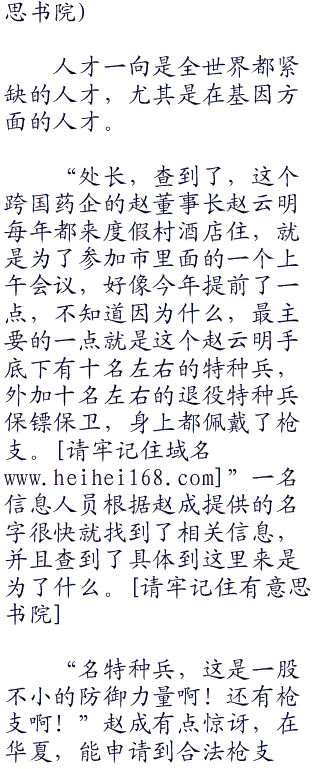 思书院)
人才一向是全世界都紧
缺的人才，尤其是在基因方
面的人才。
“处长，查到了，这个
跨国药企的赵董事长赵云明
每年都来度假村酒店住，就
是为了参加市里面的一个上
午会议，好像今年提前了一
点，不知道因为什么，最主
要的一点就是这个赵云明手
底下有十名左右的特种兵，
外加十名左右的退役特种兵
保镖保卫，身上都佩戴了枪
支。[请牢记住域名
www.heihei168.com]”一名
信息人员根据赵成提供的名
字很快就找到了相关信息，
并且查到了具体到这里来是
为了什么。[请牢记住有意思
书院]
“名特种兵，这是一股
不小的防御力量啊！还有枪
支啊！”赵成有点惊讶，在
华夏，能申请到合法枪支